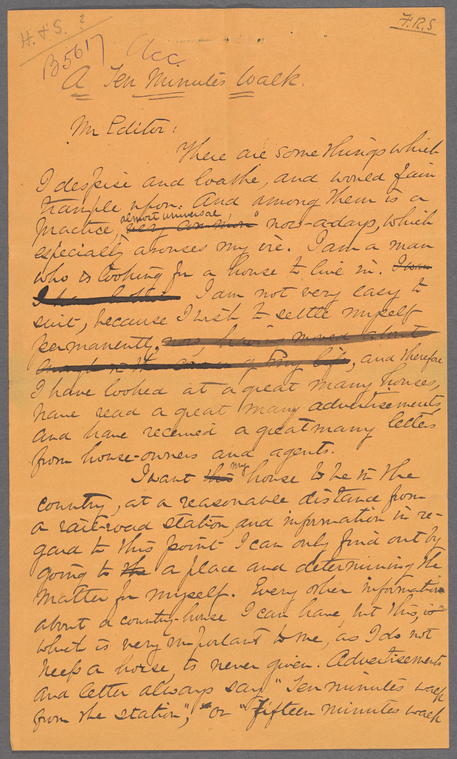 H. & S. ?
F.R.S
B5617
Acc.
A Ten Minutes Walk.
Mr Editor:
There are some things which
I despise and loathe, and would fain
trample upon. And among them is a
almost universal
practice, "very common" now-a-days, which
especially arouses my ire. I am a man
who is looking for a house to live in.
I am not very easy to
suit, because I wish to settle myself
permanently, now, having moved about
, and therefore
I have looked at a great many houses,
have read a great many advertisements,
and have received a great many letters
from house-owners and agents.
my
I want this house to be in the
country, at a reasonable distance from
a rail-road station, and information in re-
gard to this point I can only find out by
going to the a place and determining the
matter for myself. Every other information
about a country-house I can have, but this,
which is very important to me, as I do not
keep a horse, is never given. Advertisements
and letter always say "Ten minutes walk
from the station", or "Fifteen minutes walk